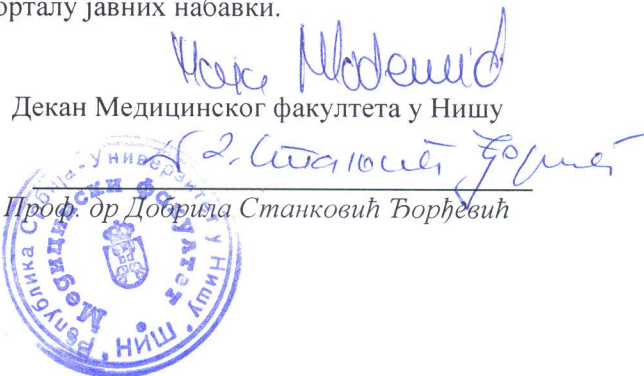 орталу јавних набавки.
Декан Медицинског факултета у Нишу
Проф. др Добрила Станковић Ђорђевић
Република Србија - Универзитет у Нишу
Медицински факултет
НИШ